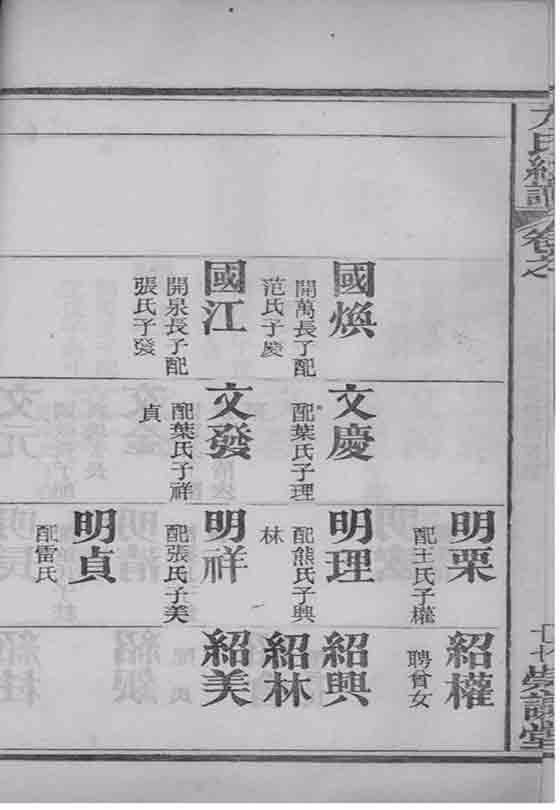 氏紅譜
卷之
七
崇謙堂
國煥
開萬長子配
范氏子慶
國江
開泉長子配
張氏子發
文慶
配葉氏子理
文發
配葉氏子祥
貞
明栗
配王氏子權
明理
配熊氏子興
林
明祥
配張氏子美
明貞
配雷氏
紹權
聘曾女
紹興
紹林
紹美